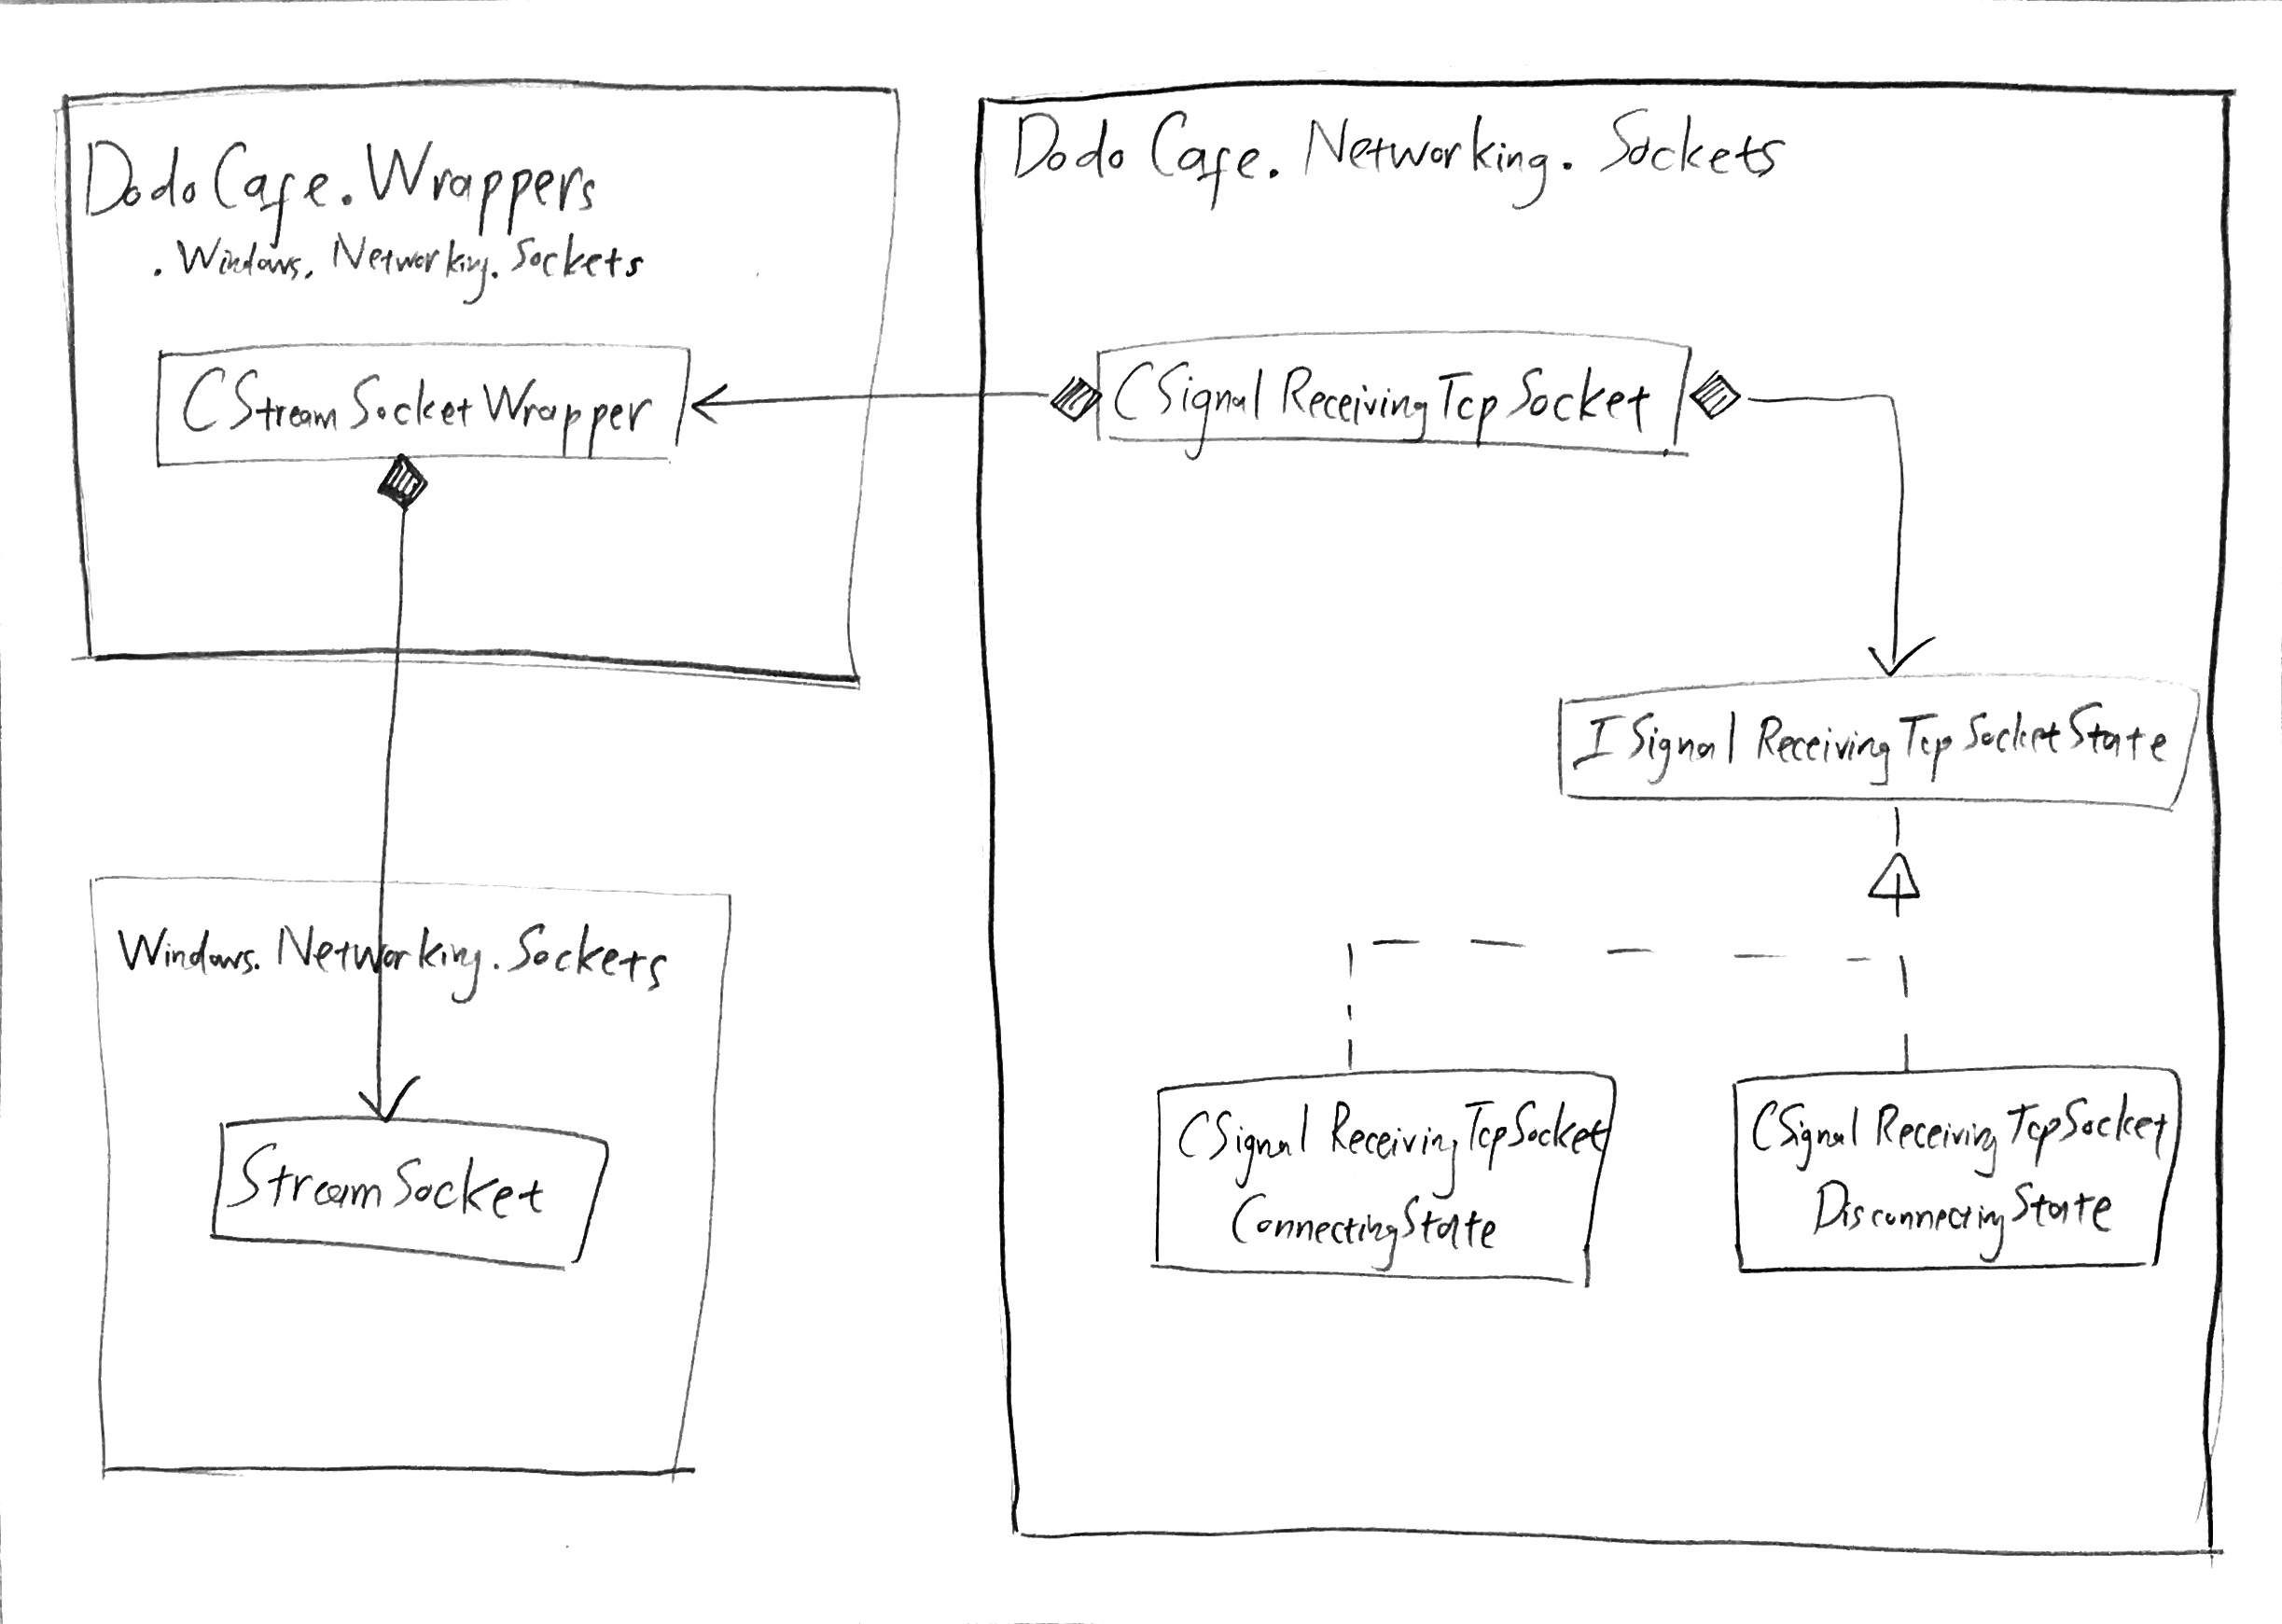 DodoCafe.Wrappers
.Windows.Networking.Sockets
CStreamSocketWrapper
Windows.Networking.Sockets
StreamSocket
DodoCafe.Networking.Sockets
CSignalReceivingTcpSocket
ISignalReceivingTcpSocketState
CSignalReceivingTcpSocket
ConnectingState
CSignalReceivingTcpSocket
DisconnectingState